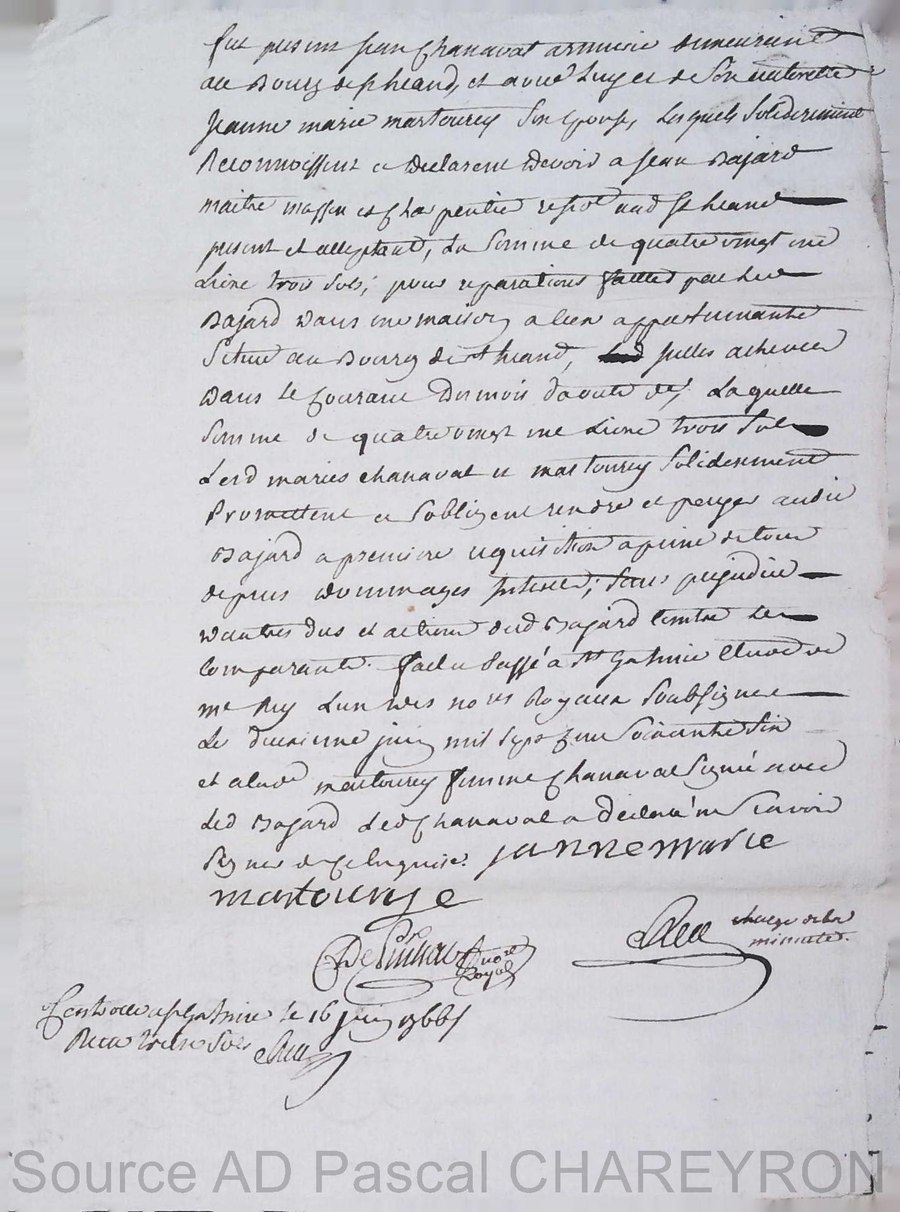 fut presint Jean Chanavat armurie demeurant
au Bourg de st heand, et avec luy et de son autorette
Jeanne marie martourey son Epouse, Lesquels soliderement
Reconnoissent et Declarent Devoir a Jean Bajard
maitre masson et Charpentie resid aud st heand
present et acceptant, La somme de quatre vingt une
Livre trois sols; pour reparations faittes par led
Bajard Dans une maison a lieu appartenante
Située au Bourg de st heand, icelles achevée
Dans le Courant Du mois daoute der. Laquelle
somme de quatre vingt une Livre trois sols
Lesd maries chanavat et martourey soliderement
Promettent et sobligent rendre et payer audit
Bajard a premiere requisition a peine de tous
depens Dommages Interet; sans prejudice
Dautres dus et action dud Bajard Contre les
Comparants. fait et Passé a st Galmie Etude de
me Rey Lun des nores Royaux soubsignee
Le deuxieme juin mil sept Cent soixante six
et a lad martourey femme Chanavat signé avec
Led Bajard Led Chanavat a Declaré ne scavoir
signer de ce Enquise. jannemarie
martourey
nore
Royal
Rey charge de la
minutte.
Controlle a st Galmie le 16 juin 1766
Recu treise sols Rey
Source AD Pascal CHAREYRON